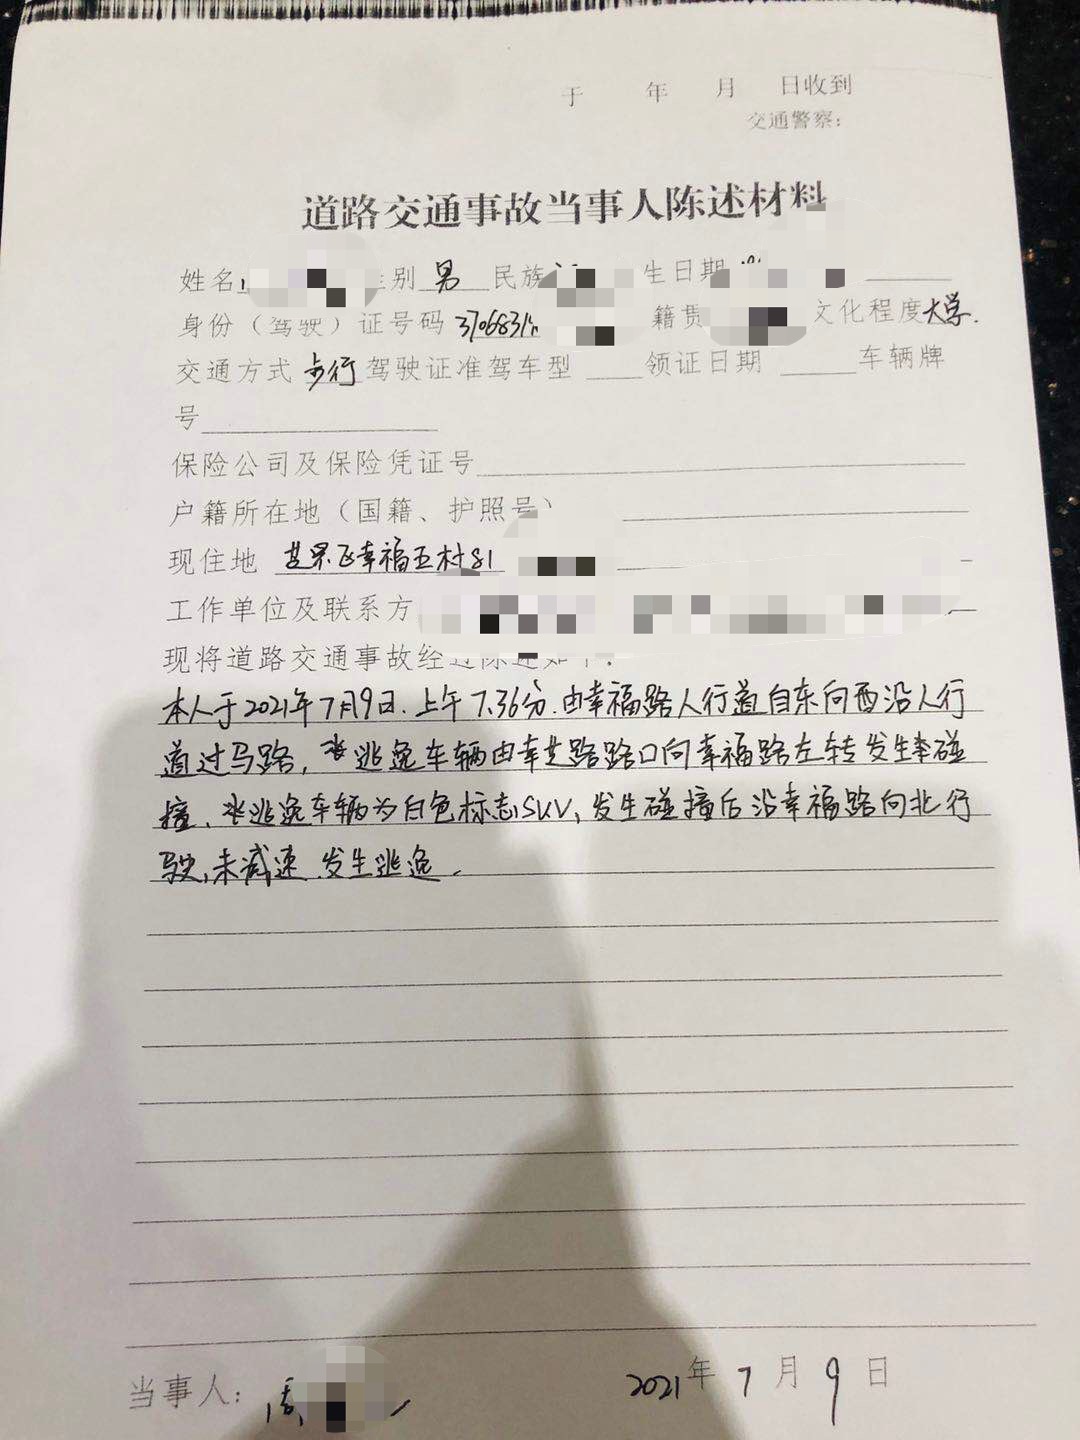 于 年 月 日收到
交通警察：
道路交通事故当事人陈述材料
姓名 性别 男 民族 生日期
身份（驾驶）证号码 3706831 籍贯 文化程度大学.
交通方式 步行 驾驶证准驾车型 领证日期 车辆牌
号
保险公司及保险凭证号
户籍所在地（国籍、护照号）
现住地 芝罘区幸福五村81
工作单位及联系方
现将道路交通事故经过陈述如下：
本人于2021年7月9日.上午7.36分.由幸福路人行道自东向西沿人行
道过马路, 逃逸车辆由幸 路路口向幸福路左转发生 碰
撞、 逃逸车辆为白色标志SUV, 发生碰撞后沿幸福路向北行
驶,未减速 发生逃逸.
当事人： 周 2021年 7 月 9 日